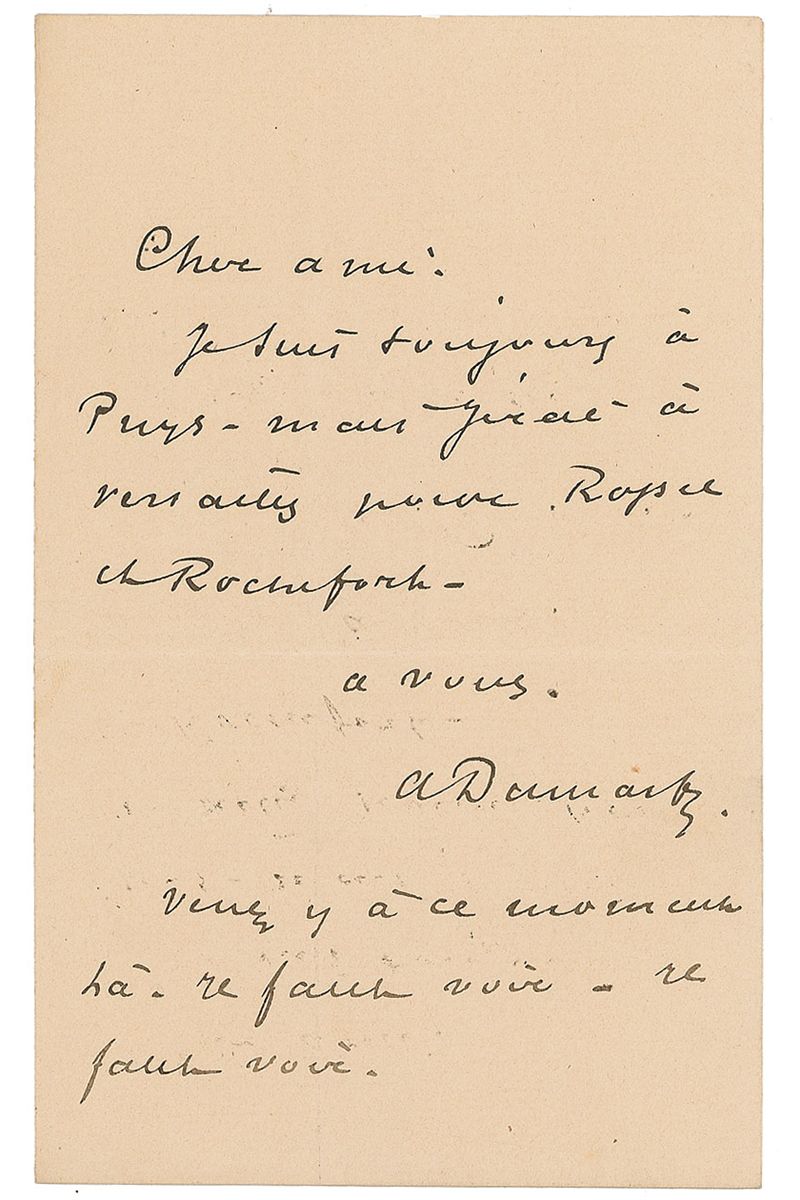 Cher ami.
Je suis toujours à
Puys - mais j'irai à
versailles pour Rossel
et Rochefort -
a vous.
ADumasfs.
Venez y à ce moment
là. Il faut voir - Il
faut voir.